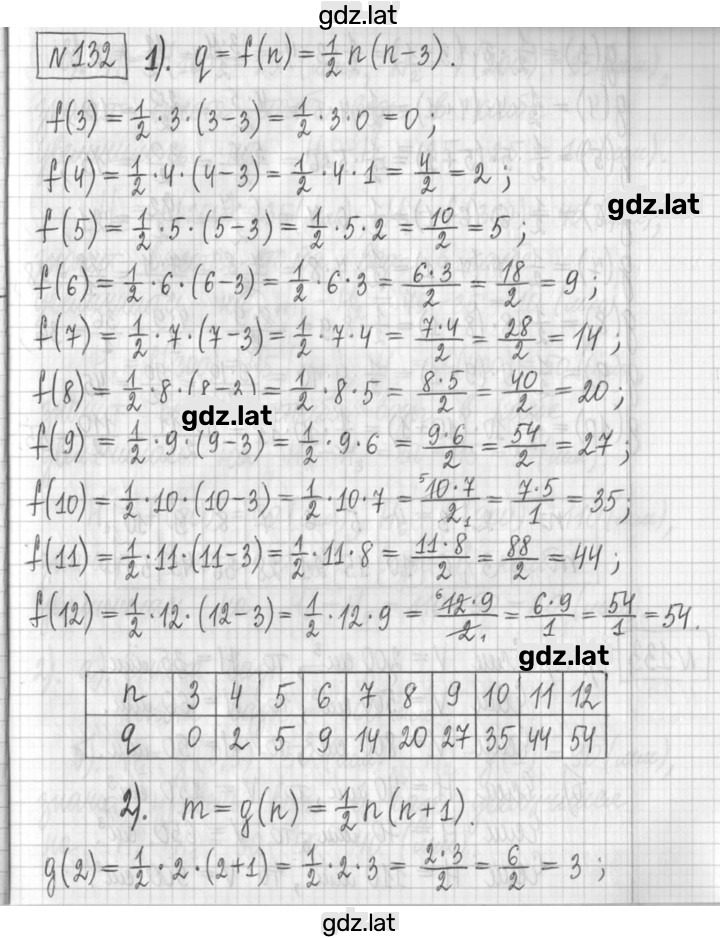 gdz.lat
№132 1). q = f(n) = 1/2 n(n-3).
f(3) = 1/2 · 3 · (3-3) = 1/2 · 3 · 0 = 0;
f(4) = 1/2 · 4 · (4-3) = 1/2 · 4 · 1 = 4/2 = 2;
gdz.lat
f(5) = 1/2 · 5 · (5-3) = 1/2 · 5 · 2 = 10/2 = 5;
f(6) = 1/2 · 6 · (6-3) = 1/2 · 6 · 3 = 6·3/2 = 18/2 = 9;
f(7) = 1/2 · 7 · (7-3) = 1/2 · 7 · 4 = 7·4/2 = 28/2 = 14;
f(8) = 1/2 · 8 · (8-3) = 1/2 · 8 · 5 = 8·5/2 = 40/2 = 20;
gdz.lat
f(9) = 1/2 · 9 · (9-3) = 1/2 · 9 · 6 = 9·6/2 = 54/2 = 27;
f(10) = 1/2 · 10 · (10-3) = 1/2 · 10 · 7 = 5 10·7/2 1 = 7·5/1 = 35;
f(11) = 1/2 · 11 · (11-3) = 1/2 · 11 · 8 = 11·8/2 = 88/2 = 44;
f(12) = 1/2 · 12 · (12-3) = 1/2 · 12 · 9 = 6 12·9/2 1 = 6·9/1 = 54/1 = 54.
gdz.lat
n 3 4 5 6 7 8 9 10 11 12
q 0 2 5 9 14 20 27 35 44 54
2). m = g(n) = 1/2 n(n+1).
g(2) = 1/2 · 2 · (2+1) = 1/2 · 2 · 3 = 2·3/2 = 6/2 = 3;
gdz.lat